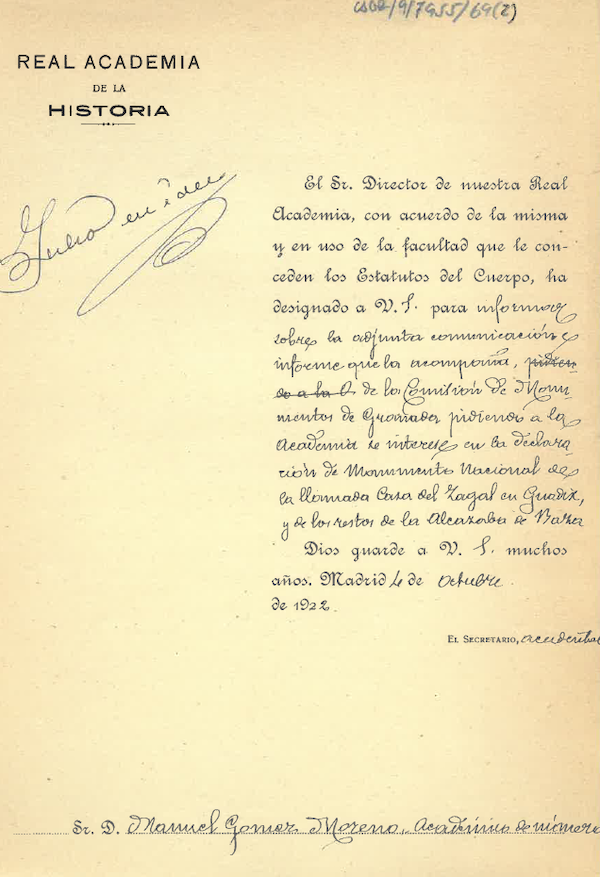 /9/7955/69(2)
REAL ACADEMIA
DE LA
HISTORIA
El Sr. Director de nuestra Real
Academia, con acuerdo de la misma
y en uso de la facultad que le con-
ceden los Estatutos del Cuerpo, ha
designado a V. S. para informar
sobre la adjunta comunicación e
informe que la acompaña, pidien-
do a la A de la Comisión de Monu-
mentos de Granada pidiendo a la
Academia se interese en la declara-
ción de Monumento Nacional de
la llamada Casa del Zagal en Guadix,
y de los restos de la Alcazaba de Baza
Dios guarde a V. S. muchos
años. Madrid 4 de octubre
de 1922.
EL SECRETARIO, accidental
Sr. D. Manuel Gomez Moreno, Académico de número